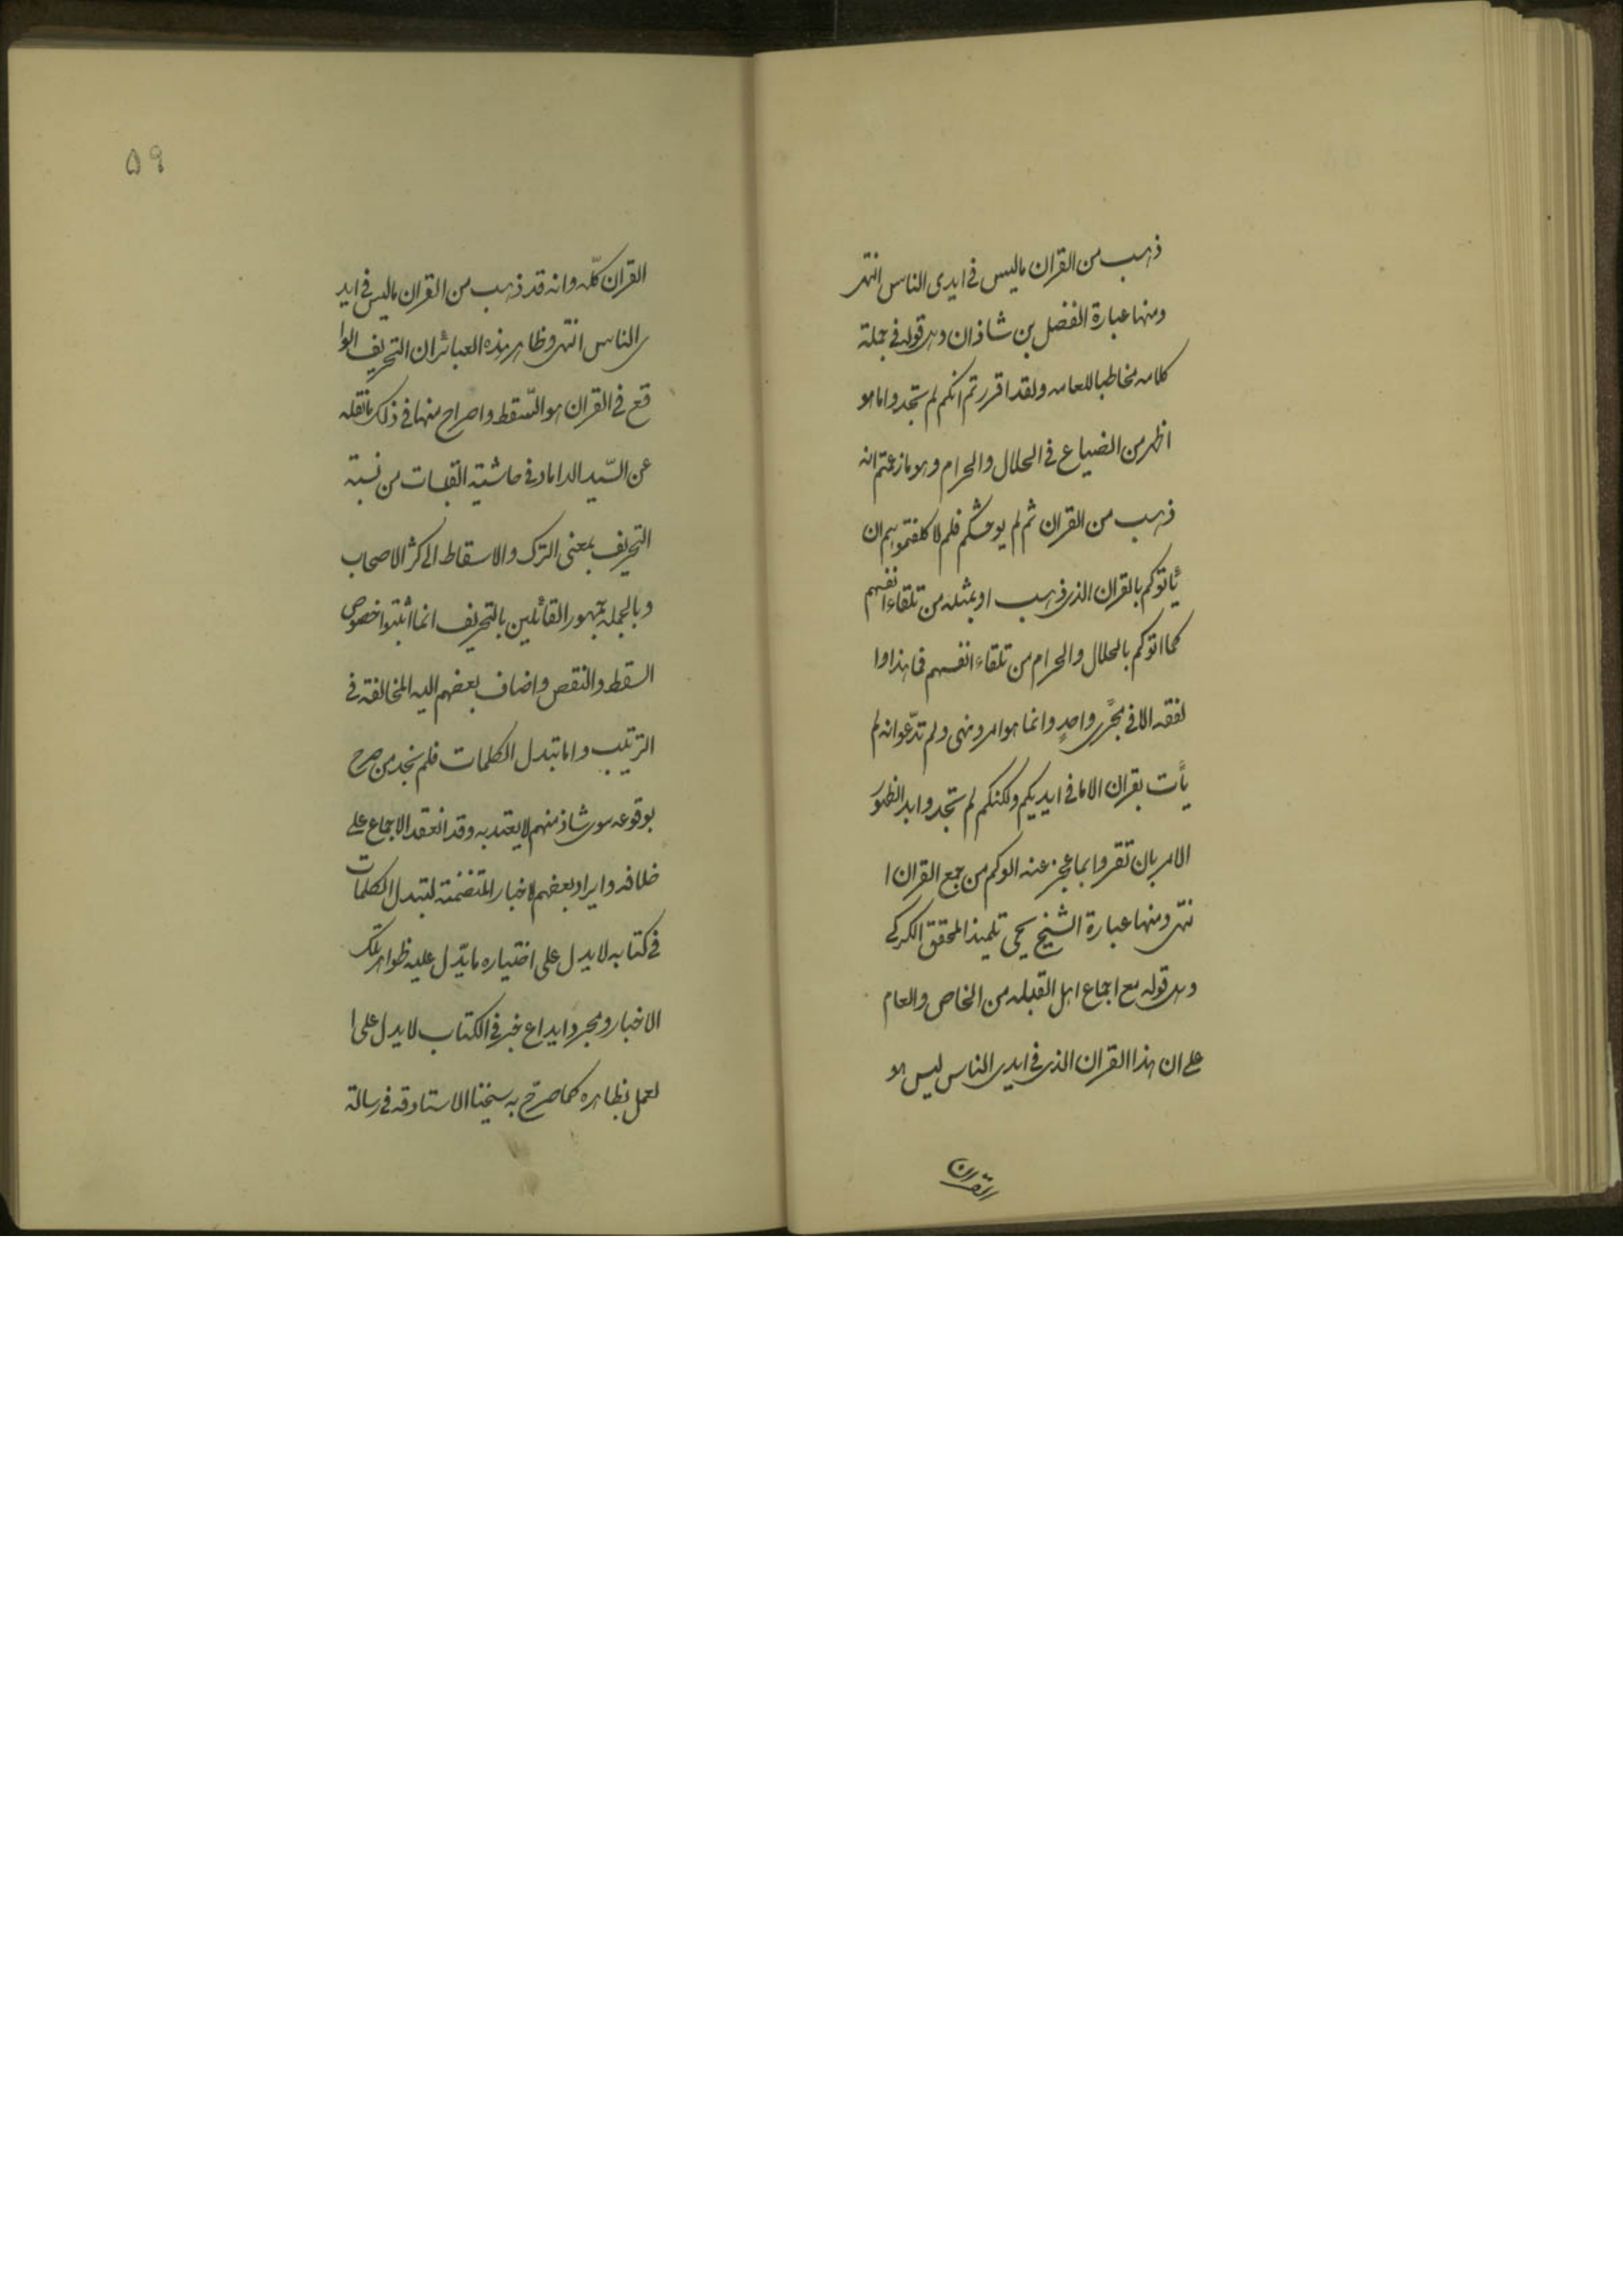 ذهب من القران ماليس فى ايدى الناس انتهى
ومنها عبارة الفضل بن شاذان وهى قوله فى جملة
كلامه مخاطبا للعامه ولقد اقررتم انكم لم تجدوا ما هو
اظهر من الضياع فى الحلال والحرام وهو ما زعمتم انه
ذهب من القران ثم لم يوحشكم فلم لا كلفتموهم ان
يأتوكم بالقران الذى ذهب او بمثله من تلقاء انفسهم
كما اتوكم بالحلال والحرام من تلقاء انفسهم فما هذا وا
لفقه الا فى مجرًى واحدٍ وانما هو امر ونهى ولم تدّعوا انه لم
يأت بقران الا ما فى ايديكم ولكنكم لم تجدوا بدا لظهور
الامر بان تقروا بما عجز عنه الوكم من جمع القران ا
نتهى ومنها عبارة الشيخ يحيى تلميذ المحقق الكركى
وهى قوله مع اجماع اهل القبله من الخاص والعام
على ان هذا القران الذى فى ايدى الناس ليس هو
القران
٥٩
القران كلّه وانه قد ذهب من القران ماليس فى ايد
ى الناس انتهى وظاهر هذه العبائر ان التحريف الوا
قع فى القران هو السّقط واصرح منها فى ذلك ما نقله
عن السّيد الداماد فى حاشية القبسات من نسبة
التحريف بمعنى الترك والاسقاط الى اكثر الاصحاب
وبالجملة جمهور القائلين بالتحريف انما اثبتوا خصوص
السقط والنقص واضاف بعضهم اليه المخالفة فى
الترتيب واما تبدل الكلمات فلم نجد من صرح
بوقوعه سوى شاذ منهم لا يعتد به وقد انعقد الاجماع على
خلافه وايراد بعضهم الاخبار المتضمنة لتبدل الكلمات
فى كتابه لا يدل على اختياره ما يدّل عليه ظواهر تلك
الاخبار ومجرد ايداع خبر فى الكتاب لا يدل على ا
لعمل بظاهره كما صرّح به شيخنا الاستاد قه فى رسالة